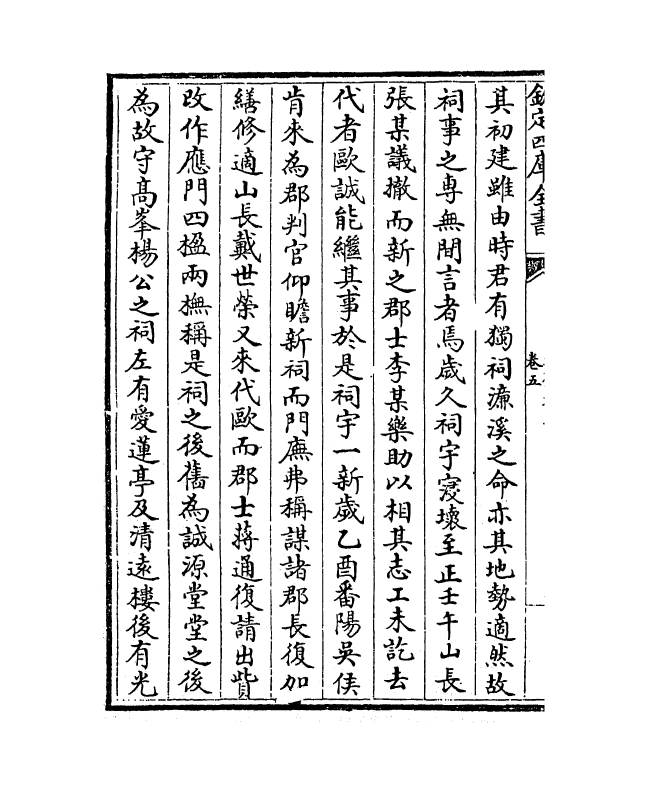 欽定四庫全書
卷五
其初建雖由時君有獨祠濂溪之命亦其地勢適然故
祠事之専無間言者焉歲久祠宇寖壞至正壬午山長
張某議撤而新之郡士李某樂助以相其志工未訖去
代者歐誠能繼其事於是祠宇一新歲乙酉番陽吳侯
肯來為郡判官仰瞻新祠而門廡弗稱謀諸郡長復加
繕修適山長戴世榮又來代歐而郡士蔣通復請出貲
改作應門四楹兩撫稱是祠之後舊為誠源堂堂之後
為故守髙峯楊公之祠左有愛蓮亭及清遠樓後有光